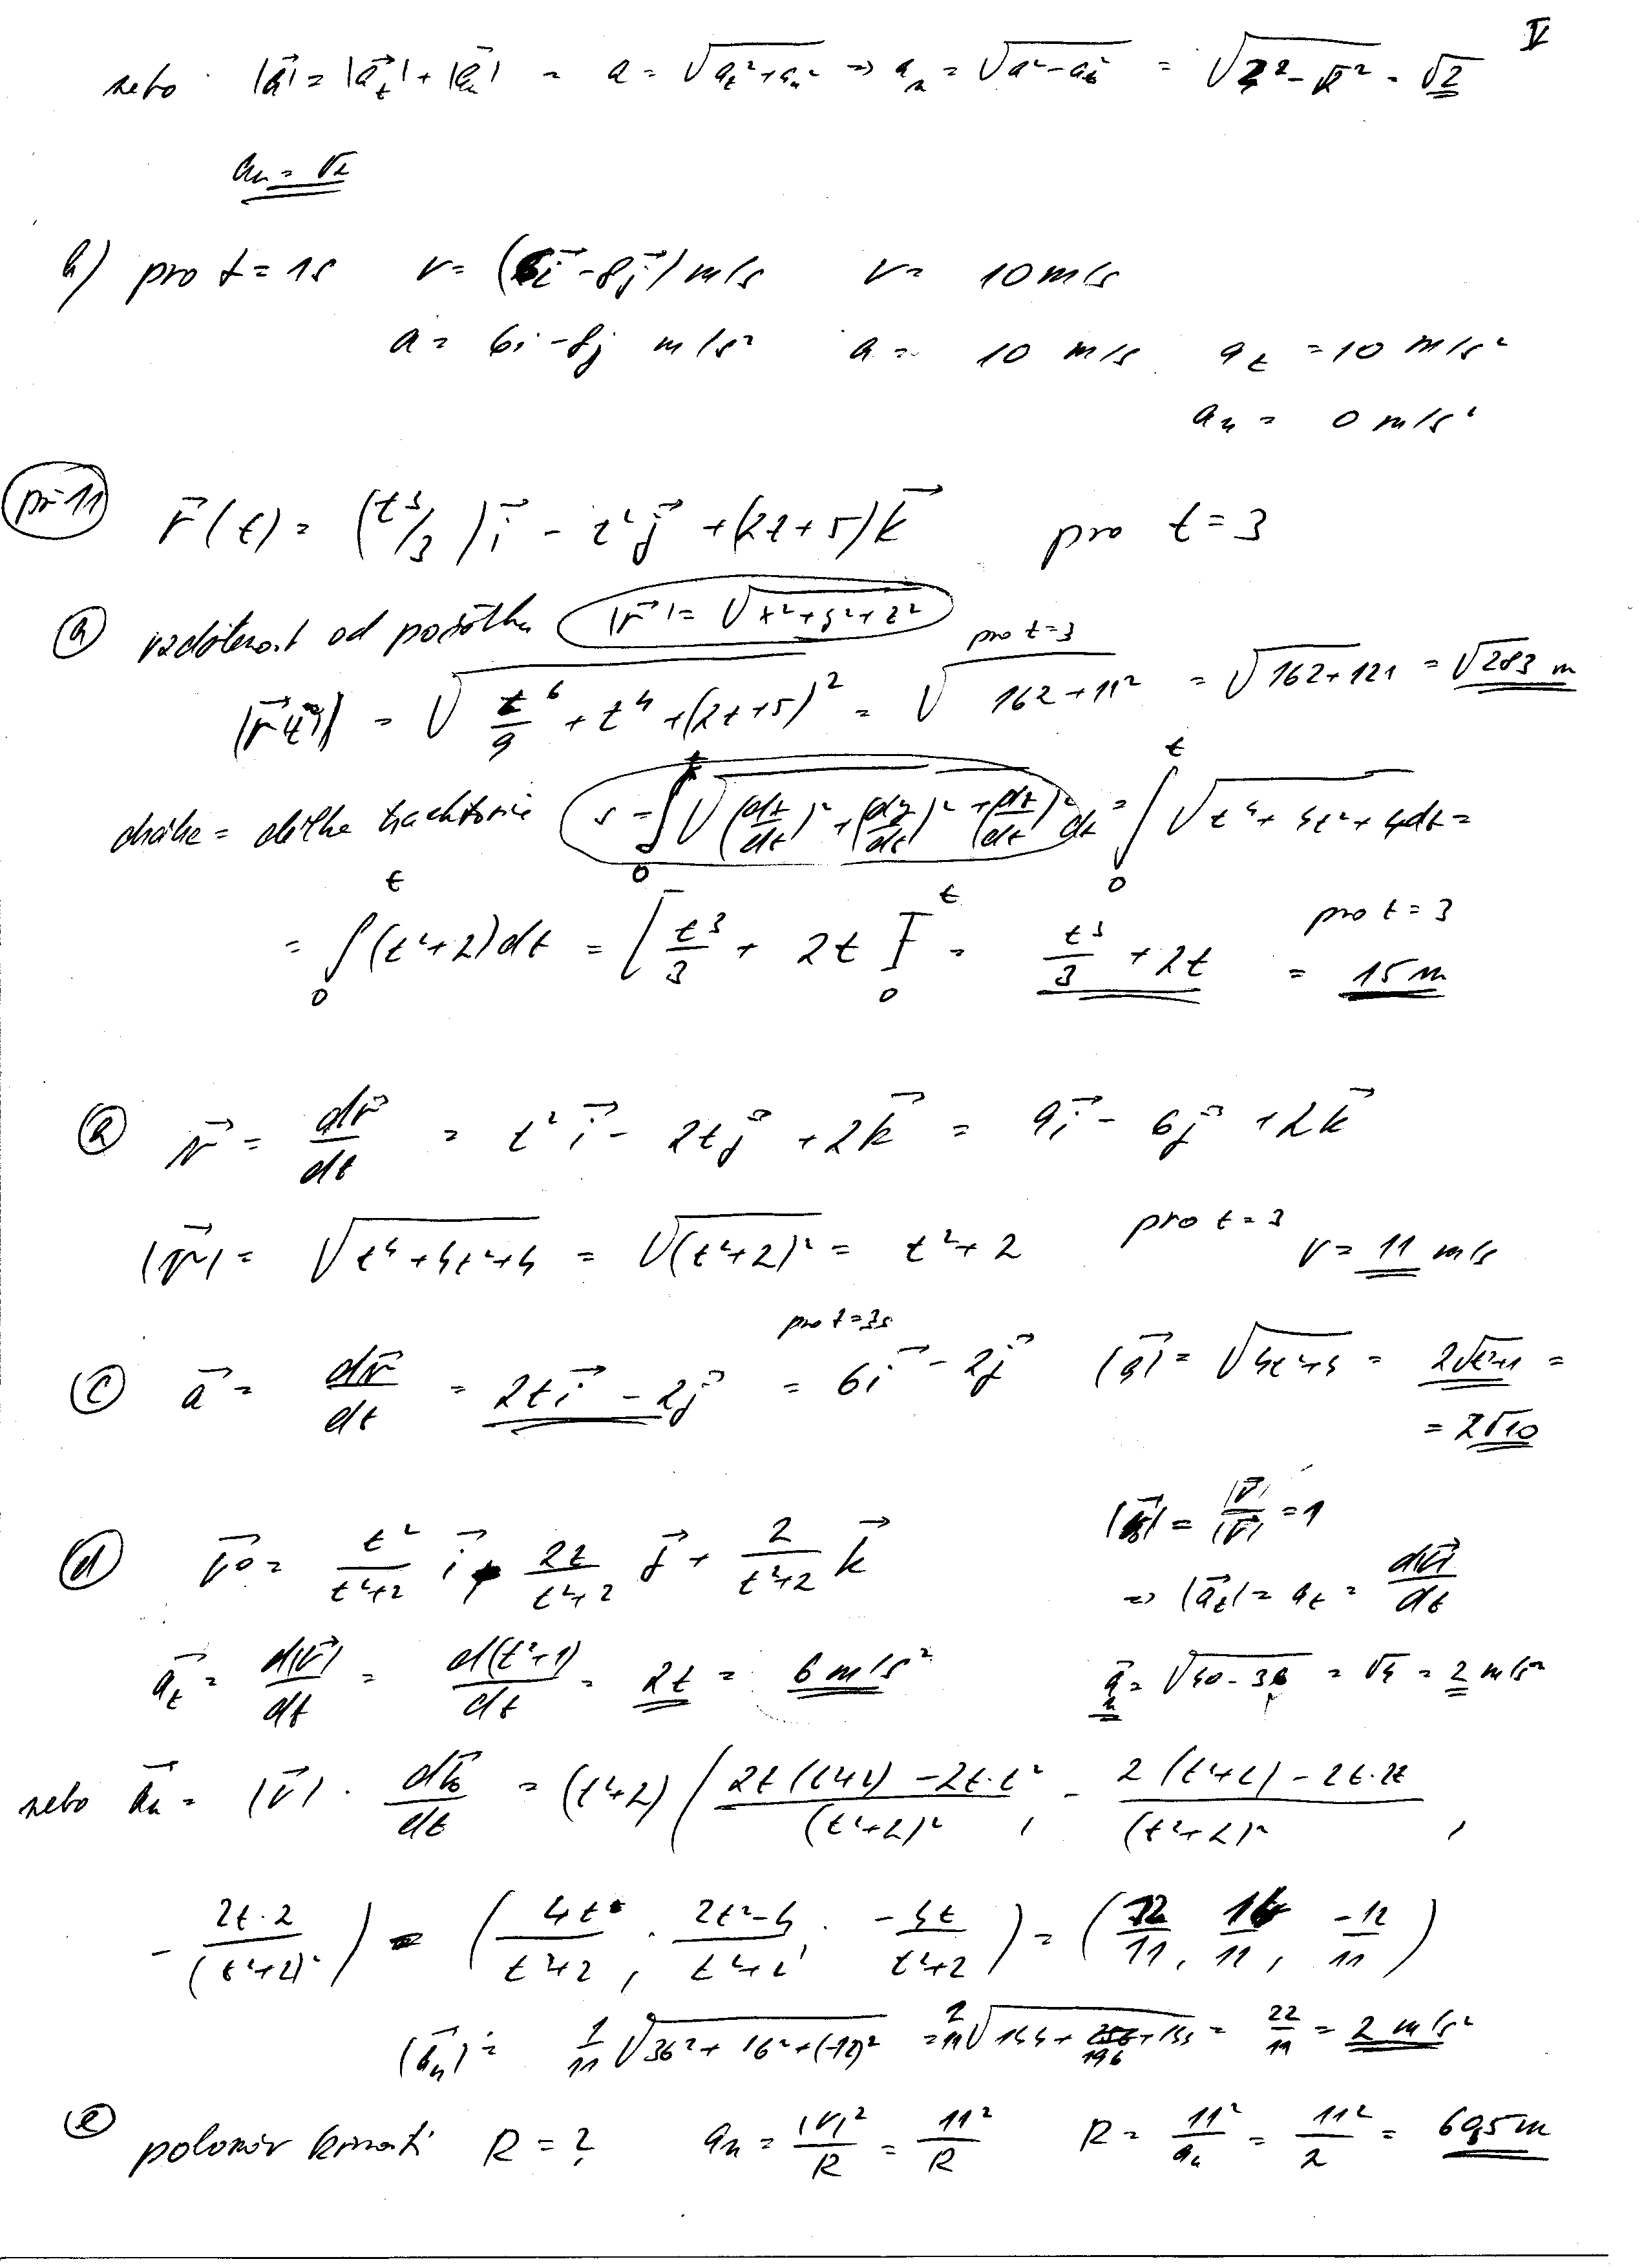 V
nebo |a⃗| = |a⃗_t| + |a⃗_n| = a = √(a_t² + a_n²) ⇒ a_n = √(a² − a_t²) = √(2² − √2²) = √2
a_n = √2
b) pro t = 1s v = (6i⃗ − 8j⃗) m/s v = 10 m/s
a = 6i − 8j m/s² a = 10 m/s a_t = 10 m/s²
a_n = 0 m/s²
př 11 r⃗(t) = (t³/3) i⃗ − t² j⃗ + (2t + 5) k⃗ pro t = 3
a) vzdálenost od počátku |r⃗| = √(x² + y² + z²)
pro t = 3
|r⃗(t)| = √(t⁶/9 + t⁴ + (2t + 5)²) = √(162 + 11²) = √(162 + 121) = √283 m
dráha = délka trajektorie s = ∫₀ᵗ √((dx/dt)² + (dy/dt)² + (dz/dt)²) dt = ∫₀ᵗ √(t⁴ + 4t² + 4) dt =
= ∫₀ᵗ (t² + 2) dt = [t³/3 + 2t]₀ᵗ = t³/3 + 2t pro t = 3 = 15 m
b) v⃗ = dr⃗/dt = t² i⃗ − 2t j⃗ + 2 k⃗ = 9i⃗ − 6j⃗ + 2k⃗
|v⃗| = √(t⁴ + 4t² + 4) = √(t² + 2)² = t² + 2 pro t = 3 v = 11 m/s
pro t = 3s
c) a⃗ = dv⃗/dt = 2t i⃗ − 2j⃗ = 6i⃗ − 2j⃗ |a⃗| = √(4t² + 4) = 2√(t² + 1) =
= 2√10
|v⃗₀| = |v⃗|/|v⃗| = 1
d) v⃗⁰ = t²/(t²+2) i⃗ − 2t/(t²+2) j⃗ + 2/(t²+2) k⃗
⇒ |a⃗_t| = a_t = d|v⃗|/dt
a⃗_t = d|v⃗|/dt = d(t²+1)/dt = 2t = 6 m/s² a⃗_n = √(40 − 36) = √4 = 2 m/s²
nebo a⃗_n = |v⃗| · dv⃗₀/dt = (t²+2) ( (2t(t²+2) − 2t·t²)/(t²+2)² , − (2(t²+2) − 2t·2t)/(t²+2)² ,
− 2t·2/(t²+2)² ) = ( 4t/(t²+2) , (2t²−4)/(t²+2) , −4t/(t²+2) ) = ( 12/11 , 14/11 , −12/11 )
|a⃗_n| = 1/11 √(36² + 16² + (−12)²) = 1/11 √(144 + 196 + 144) = 22/11 = 2 m/s²
e) poloměr křivosti R = ? a_n = |v|²/R = 11²/R R = 11²/a_n = 11²/2 = 60,5 m